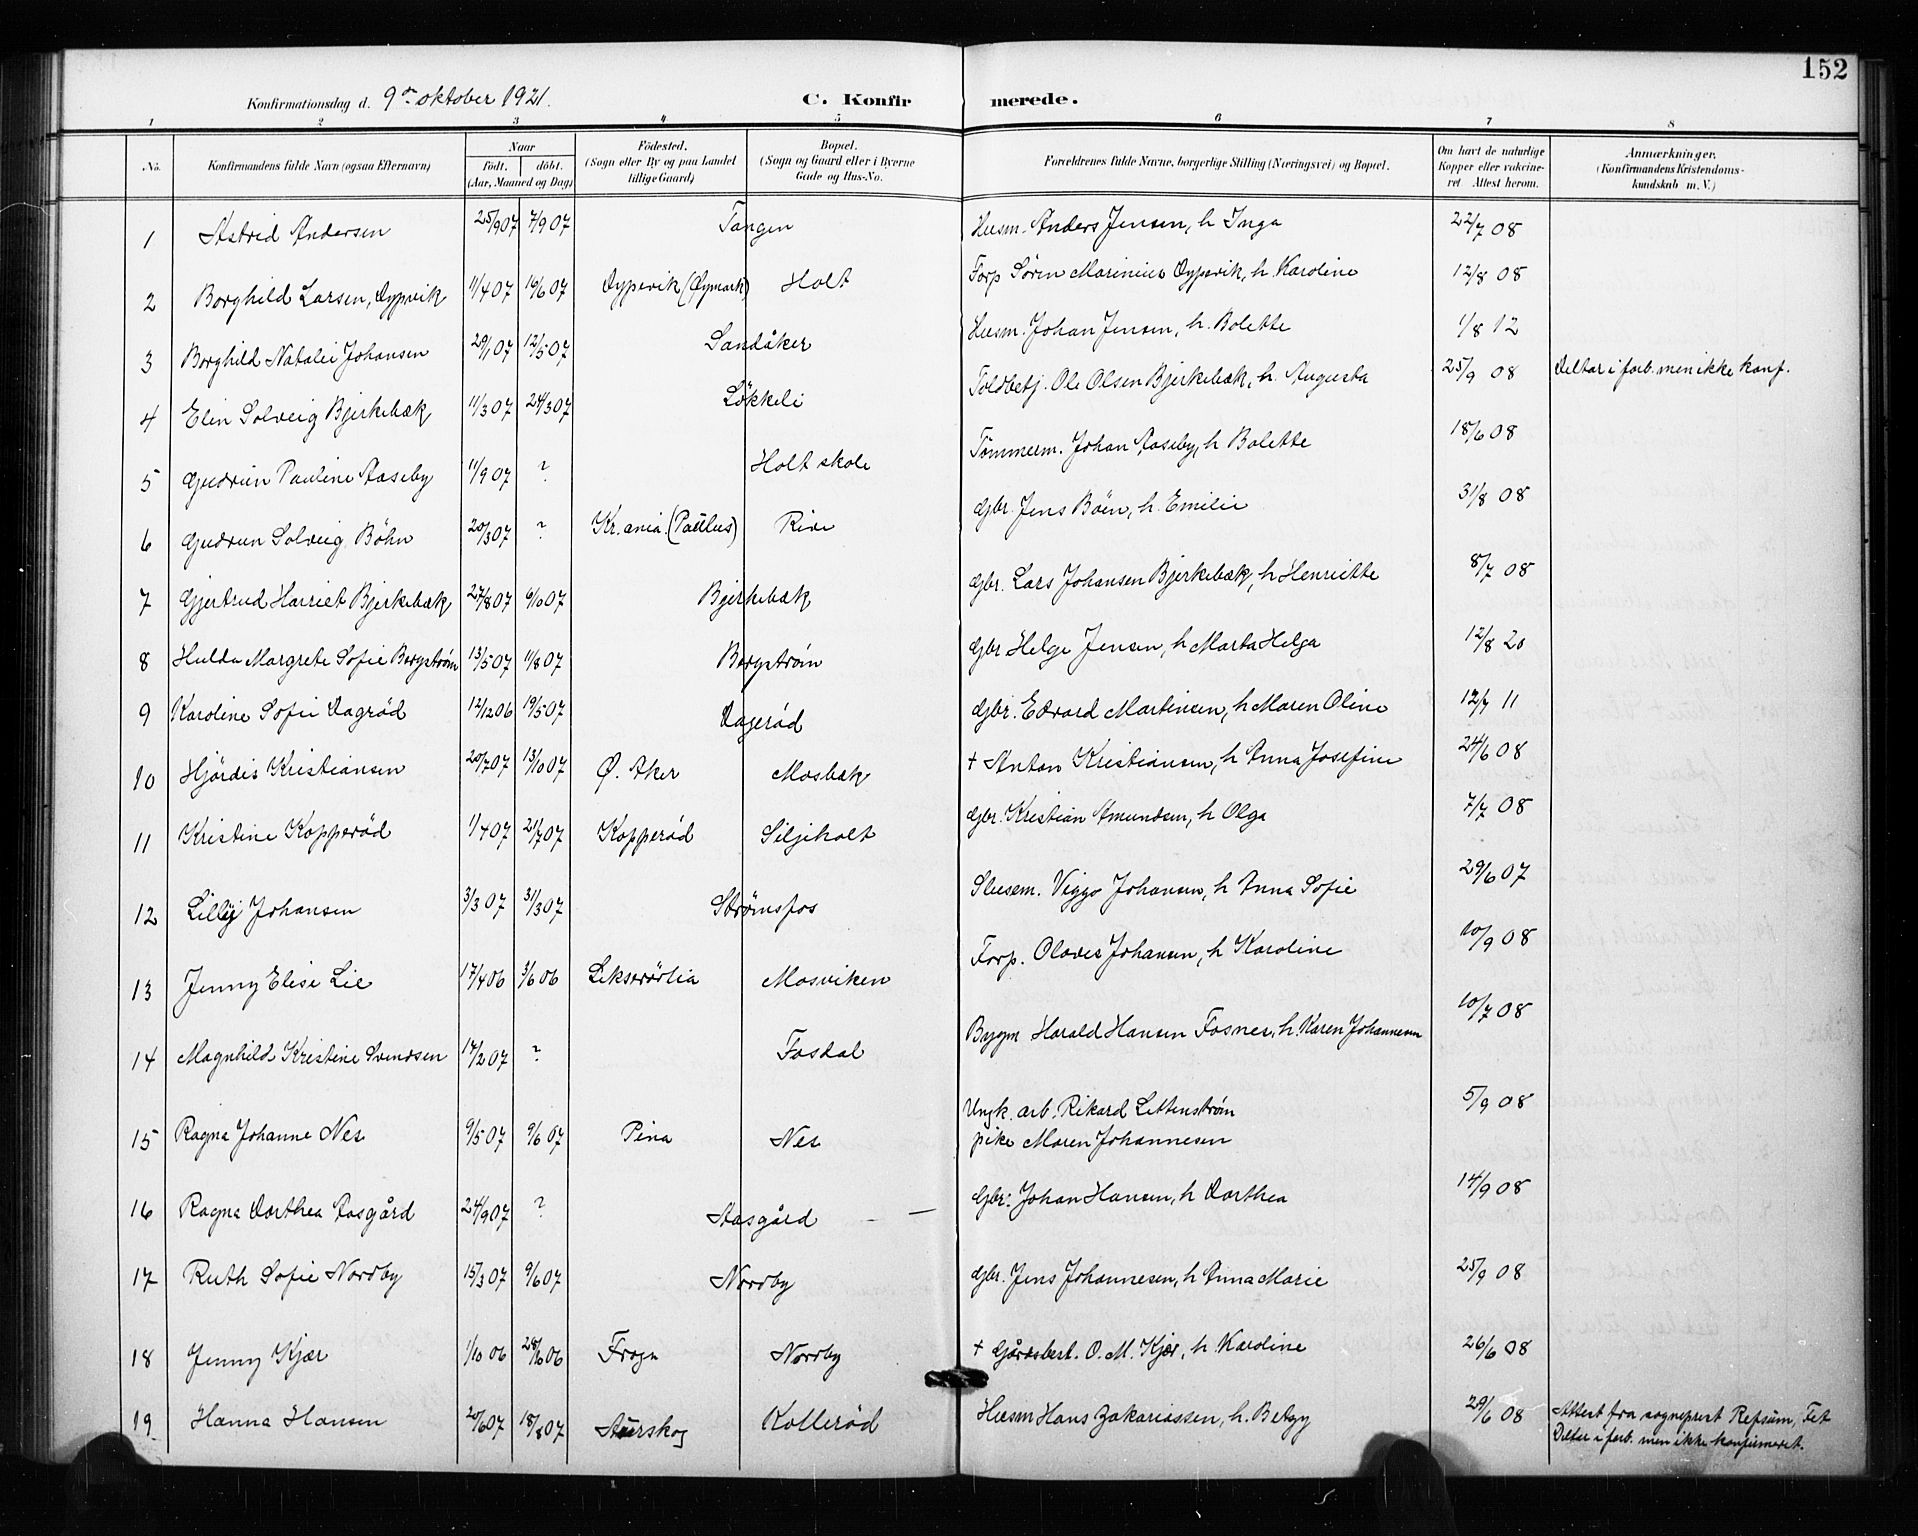 152
Konfirmationsdag d. 9de oktober 1921. C. Konfirmerede.
1 2 3 4 5 6 7 8
No. Konfirmandens fulde Navn (ogsaa Efternavn) Naar født. døbt. (Aar, Maaned og Dag) Fødested. (Sogn eller By og paa Landet tillige Gaard.) Bopæl. (Sogn og Gaard eller i Byerne Gade og Hus-No. Forældrenes fulde Navne, borgerlige Stilling (Næringsvei) og Bopæl. Om havt de naturlige Kopper eller vakcineret Attest herom. Anmærkninger. (Konfirmandens Kristendomskundskab m. V.)
1 Astrid Andersen 25/9 07 7/9 07 Tangen Husm. Anders Jensen, h Inga 22/7 08
2 Borghild Larsen, Dypvik 11/4 07 16/6 07 Dypevik (Øymark) Holt Forp Søren Marinius Dypevik, h. Karoline 12/8 08
3 Borghild Natalei Johansen 29/1 07 12/5 07 Sandåker Husm. Johan Jensen, h. Bolette 1/8 12
4 Elin Solveig Bjerkebæk 11/3 07 24/3 07 Løkkeli Toldbetj. Ole Olsen Bjerkebæk, h. Augusta 25/9 08 Deltar i forb. men ikke konf.
5 Gudrun Pauline Aaseby 11/9 07 ? Holt skole Tømmerm. Johan Aaseby, h Bolette 18/6 08
6 Gudrun Solveig Böhn 20/3 07 ? Kr.ania (Paulus) Rive Gbr. Jens Böen, h. Emilie 31/8 08
7 Gjertrud Harriet Bjerkebæk 27/8 07 6/10 07 Bjerkebæk Gbr. Lars Johansen Bjerkebæk, h Henriette 8/7 08
8 Hulda Margrete Sofie Bergstrøm 13/5 07 11/8 07 Bergstrøm Gbr Helge Jensen, h Marta Helga 12/8 20
9 Karoline Sofie Dagrød 12/12 06 19/5 07 Dagerød Gbr. Edvard Martinsen, h Maren Oline 12/7 11
10 Hjördis Kristiansen 20/7 07 13/10 07 Ø. Aker Mosbæk + Anton Kristiansen, h Anna Josefine 24/6 08
11 Kristine Kopperød 1/4 07 21/7 07 Kopperød Siljeholt Gbr. Kristian Amundsen, h Olga 7/7 08
12 Lilly Johansen 3/3 07 31/3 07 Strømsfos Slusem. Viggo Johansen, h Anna Sofie 29/6 07
13 Jenny Elise Lie 17/4 06 3/6 06 Mosviken Forp. Olaves Johansen, h Karoline 10/9 08
14 Magnhild Kristine Svendsen 14/2 07 ? Fosdal Bygm Harald Hansen Fosnes, h. Karen Johannesen 10/7 08
15 Ragna Johanne Nes 9/5 07 9/6 07 Pina Nes Ungk. arb. Rikard Lettenstrøm
pike Maren Johannesen 5/9 08
16 Ragna Dorthea Aasgård 24/9 07 ? Aasgård — Gbr. Johan Hansen, h Dorthea 14/9 08
17 Ruth Sofie Nordby 15/3 07 9/6 07 Nordby Gbr. Jens Johannesen, h Anna Marie 25/9 08
18 Jenny Kjær 1/10 06 28/10 06 Frogn Nordby + Gårdsbest. O. M. Kjær, h Karoline 26/6 08
19 Hanna Hansen 20/6 07 18/8 07 Aurskog Kollerød Husm Hans Zakariassen, h. Betzy 29/6 08 Attest fra sogneprest Refsum, Fet
Deltar i forb. men ikke konfirmeret.